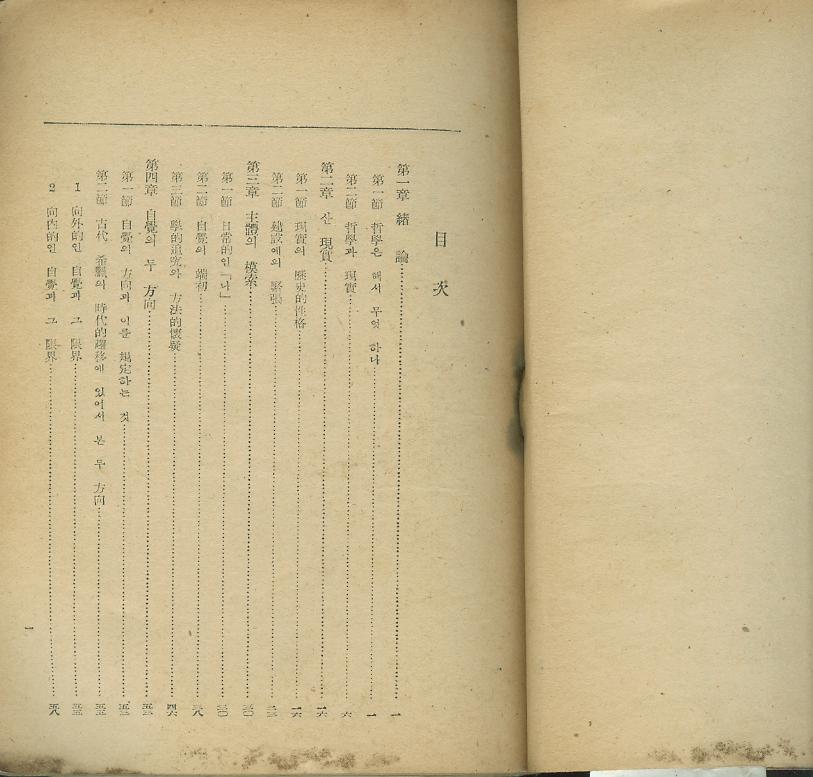 目次
第一章 緖論 一
第一節 哲學은 해서 무엇 하나 一
第二節 哲學과 現實 六
第二章 산 現實 一六
第一節 現實의 歷史的性格 一六
第二節 建設에의 緊張
第三章 主體의 模索 三〇
第一節 日常的인「나」 三〇
第二節 自覺의 端初 三八
第三節 學的追究와 方法的懷疑 四六
第四章 自覺의 두 方向
第一節 自覺의 方向과 이를 規定하는 것
第二節 古代 希臘의 時代的推移에 있어서 본 두 方向
1 向外的인 自覺과 그 限界
2 向內的인 自覺과 그 限界 五八
一